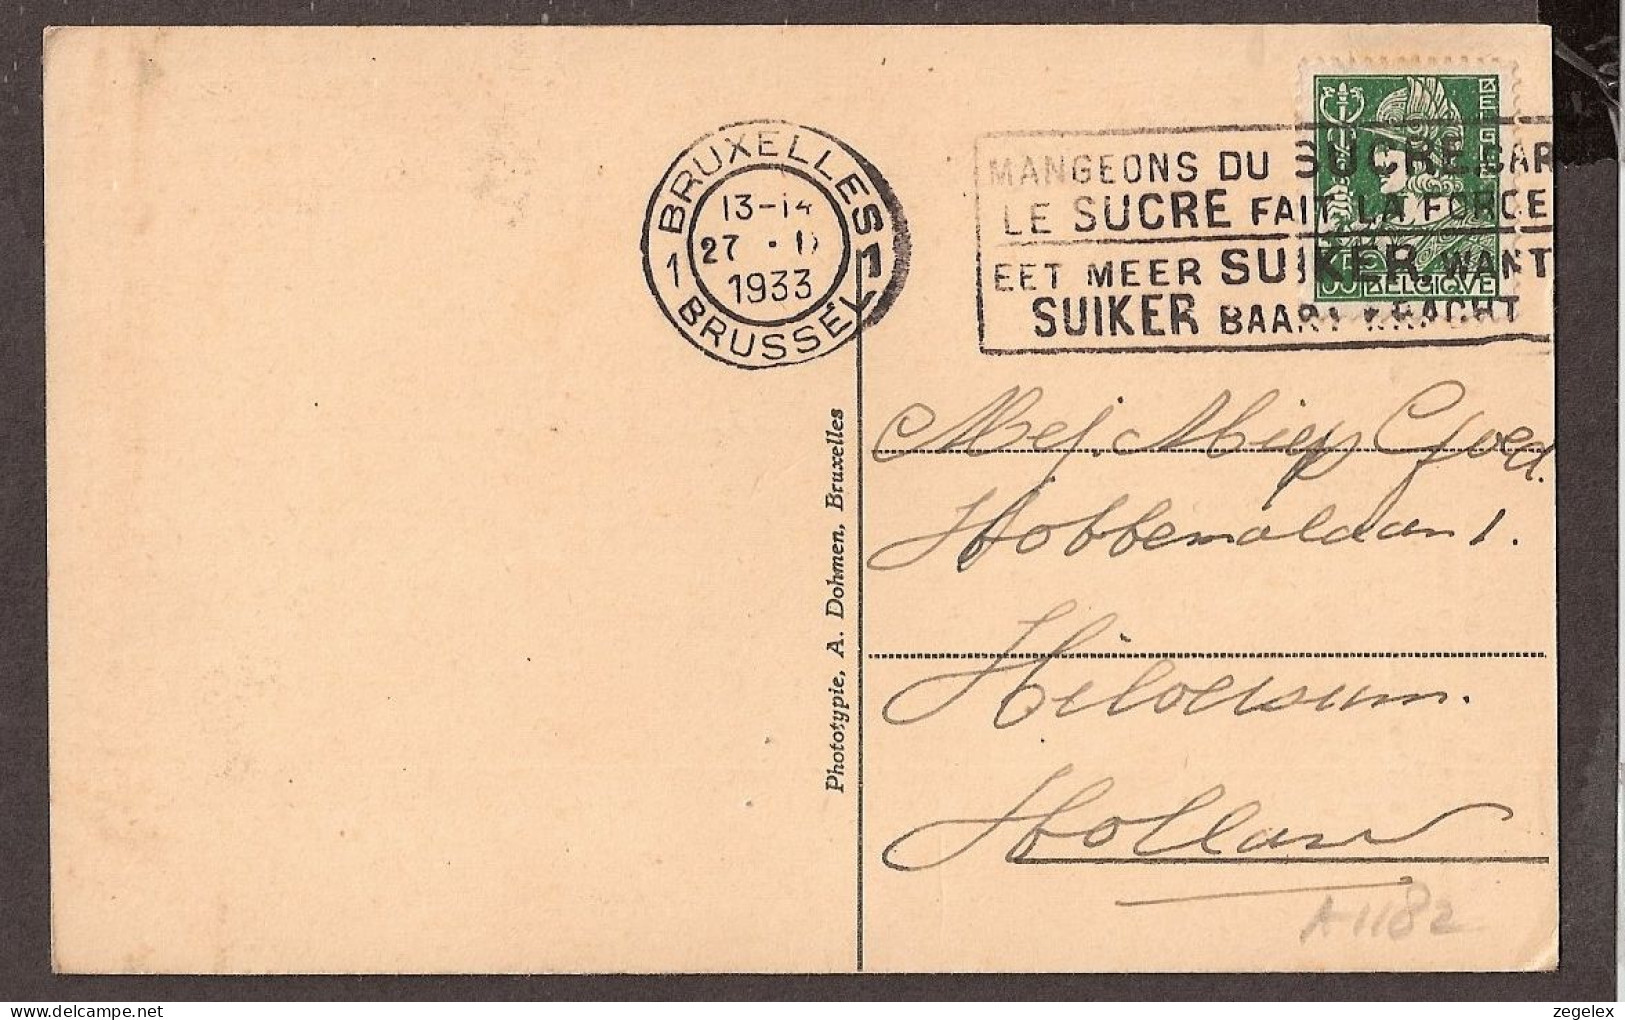 BRUXELLES
13-14
27 · II
1933
1 1
BRUSSEL
MANGEONS DU SUCRE, CAR
LE SUCRE FAIT LA FORCE
EET MEER SUIKER, WANT
SUIKER BAART KRACHT
BELGIË
35
BELGIQUE
Phototypie, A. Dohmen, Bruxelles
Mej. Miep Goed.
Hobbemalaan 1.
Hilversum.
Holland
A1182
zegelex